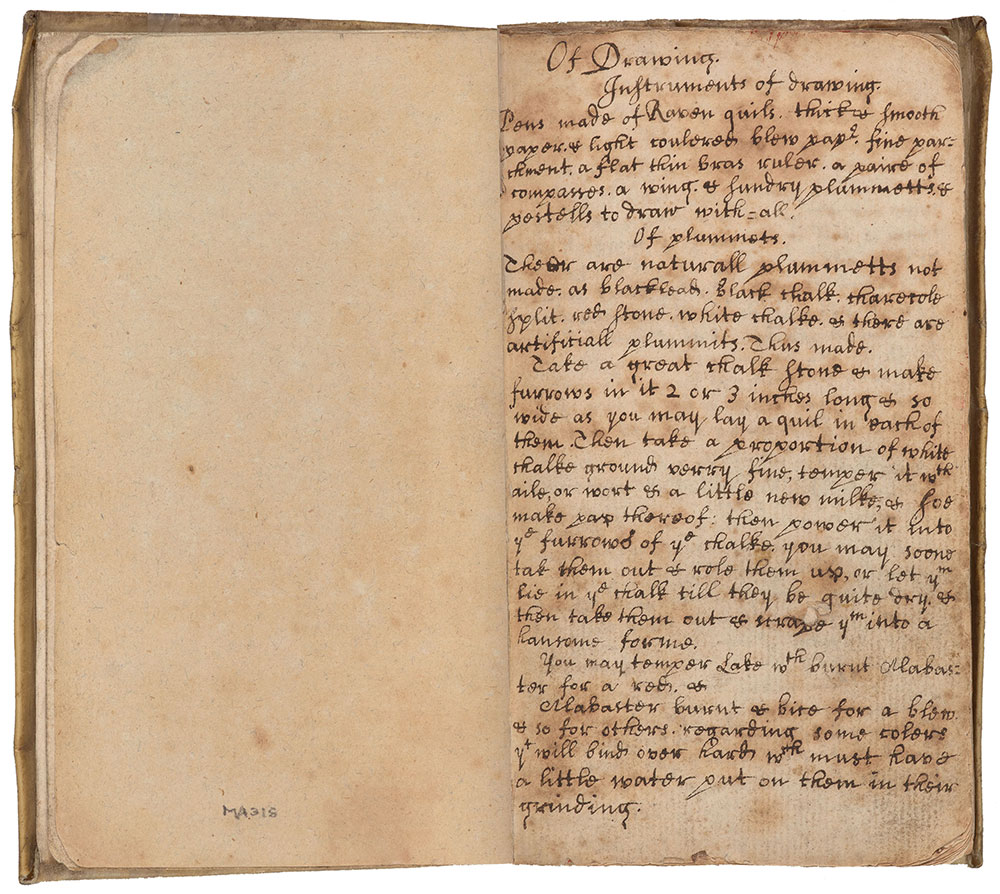 MA318
Of Drawing.
Instruments of drawing.
Pens made of Raven quils. thick & smooth
paper. & light coulered blew papr. fine par-
chment. a flat thin bras ruler. a paire of
compasses. a wing. & sundry plummetts. &
pestells to draw with=all.
Of plummets.
Their are naturall plummetts not
made. as blacklead. Black chalk. charecole
split. red stone. white chalke. & there are
artificiall plummits. Thus made.
Take a great chalk stone & make
furrows in it 2 or 3 inches long & so
wide as you may lay a quil in each of
them. Then take a proportion of white
chalke ground verry fine, temper it wth
aile, or wort & a little new milke, & soe
make pap thereof: then power it into
ye furrows of ye chalke. you may soone
tak them out & role them up, or let ym
lie in ye chalk till they be quite dry. &
then take them out & scrape ym into a
hansome forme.
You may temper Lake wth burnt Alabas-
ter for a red. &
Alabaster burnt & bice for a blew.
& so for others. regarding some colers
yt will bind over hard wch must have
a little water put on them in their
grinding.